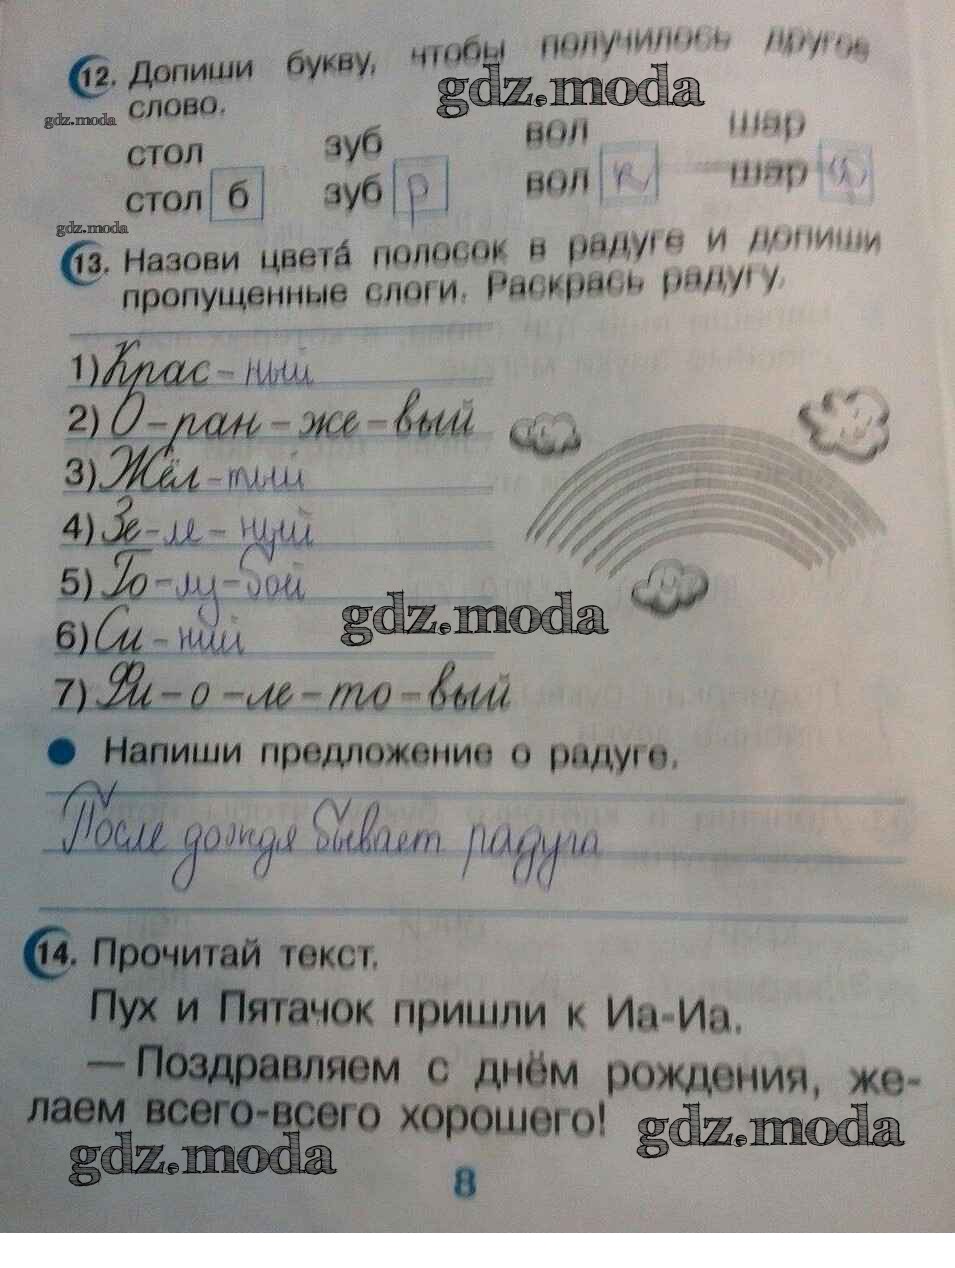 12. Допиши букву, чтобы получилось другое
gdz.moda
gdz.moda слово.
стол зуб вол шар
стол б зуб р вол к шар ф
gdz.moda
13. Назови цвета́ полосок в радуге и допиши
пропущенные слоги. Раскрась радугу.
1) Крас - ный
2) О - ран - же - вый
3) Жёл - тый
4) Зе - ле - ный
5) Го - лу - бой
gdz.moda
6) Си - ний
7) Фи - о - ле - то - вый
Напиши предложение о радуге.
После дождя бывает радуга
14. Прочитай текст.
Пух и Пятачок пришли к Иа-Иа.
— Поздравляем с днём рождения, же-
лаем всего-всего хорошего!
gdz.moda gdz.moda
8